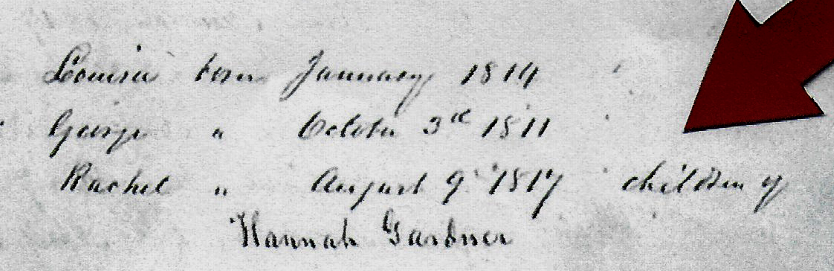 Louisa born January 1814
George " October 3rd 1811
Rachel " August 9 1817 children of
Hannah Gardner